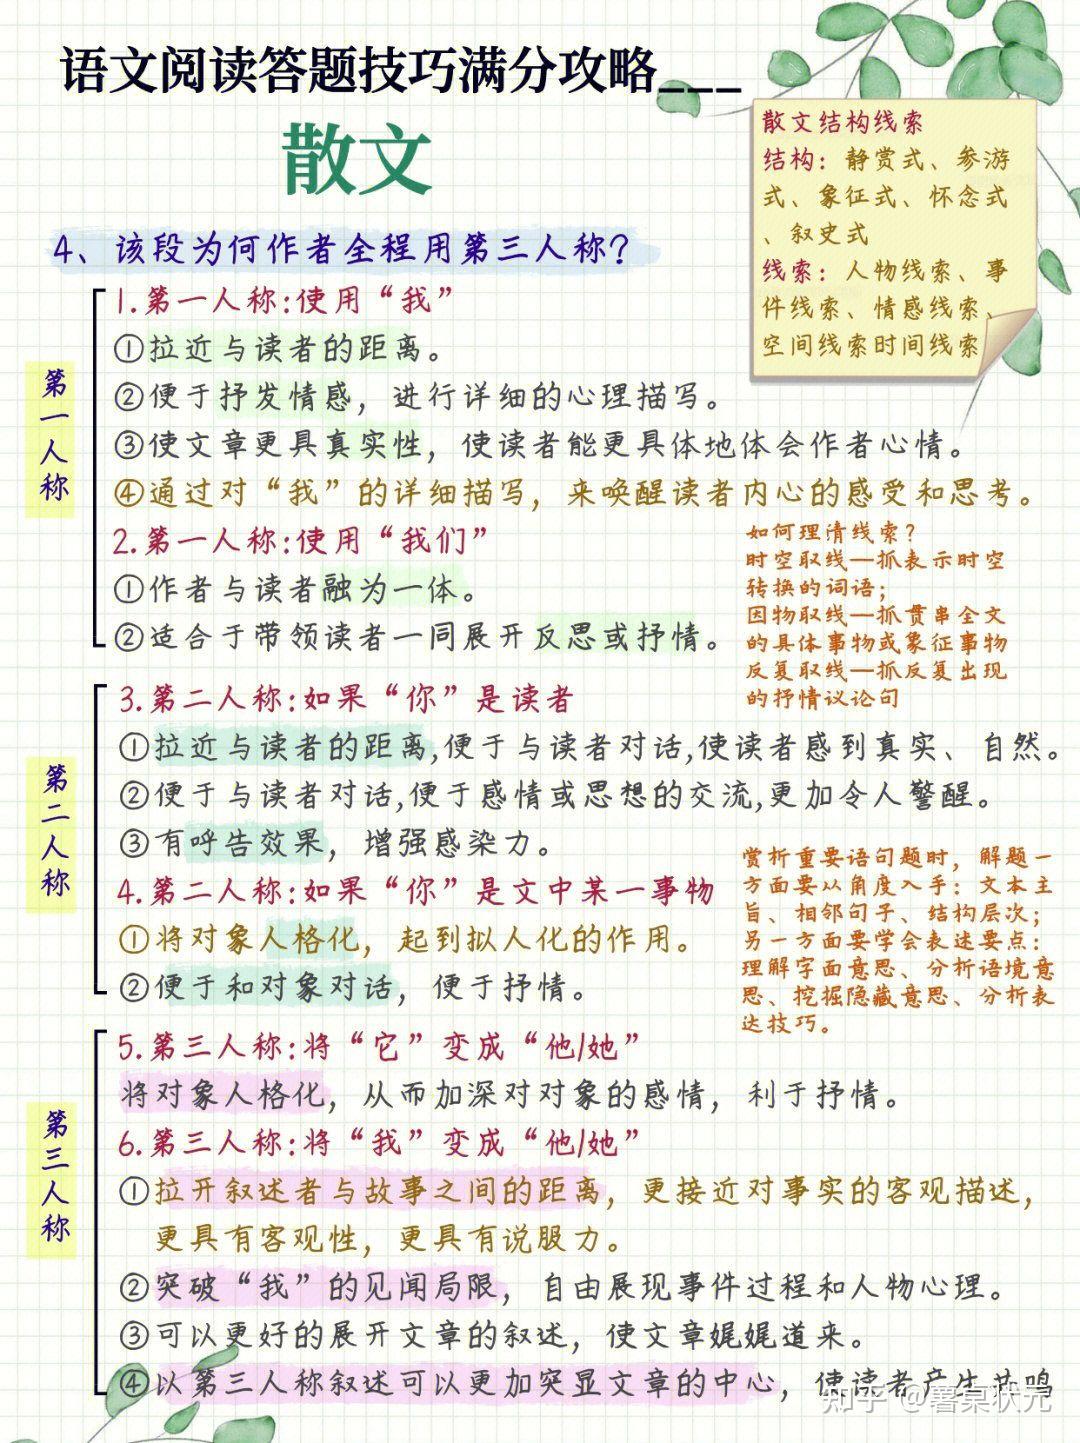 语文阅读答题技巧满分攻略___
散文
散文结构线索
结构：静赏式、参游
式、象征式、怀念式
、叙史式
线索：人物线索、事
件线索、情感线索、
空间线索时间线索
4、该段为何作者全程用第三人称？
第一人称
1.第一人称:使用“我”
①拉近与读者的距离。
②便于抒发情感，进行详细的心理描写。
③使文章更具真实性，使读者能更具体地体会作者心情。
④通过对“我”的详细描写，来唤醒读者内心的感受和思考。
2.第一人称:使用“我们”
①作者与读者融为一体。
②适合于带领读者一同展开反思或抒情。
如何理清线索？
时空取线—抓表示时空
转换的词语；
因物取线—抓贯串全文
的具体事物或象征事物
反复取线—抓反复出现
的抒情议论句
第二人称
3.第二人称:如果“你”是读者
①拉近与读者的距离,便于与读者对话,使读者感到真实、自然。
②便于与读者对话,便于感情或思想的交流,更加令人警醒。
③有呼告效果，增强感染力。
4.第二人称:如果“你”是文中某一事物
①将对象人格化，起到拟人化的作用。
②便于和对象对话，便于抒情。
赏析重要语句题时，解题一
方面要从角度入手：文本主
旨、相邻句子、结构层次；
另一方面要学会表述要点：
理解字面意思、分析语境意
思、挖掘隐藏意思、分析表
达技巧。
第三人称
5.第三人称:将“它”变成“他/她”
将对象人格化，从而加深对对象的感情，利于抒情。
6.第三人称:将“我”变成“他/她”
①拉开叙述者与故事之间的距离，更接近对事实的客观描述，
更具有客观性，更具有说服力。
②突破“我”的见闻局限，自由展现事件过程和人物心理。
③可以更好的展开文章的叙述，使文章娓娓道来。
④以第三人称叙述可以更加突显文章的中心，使读者产生共鸣
知乎 @薯桌状元